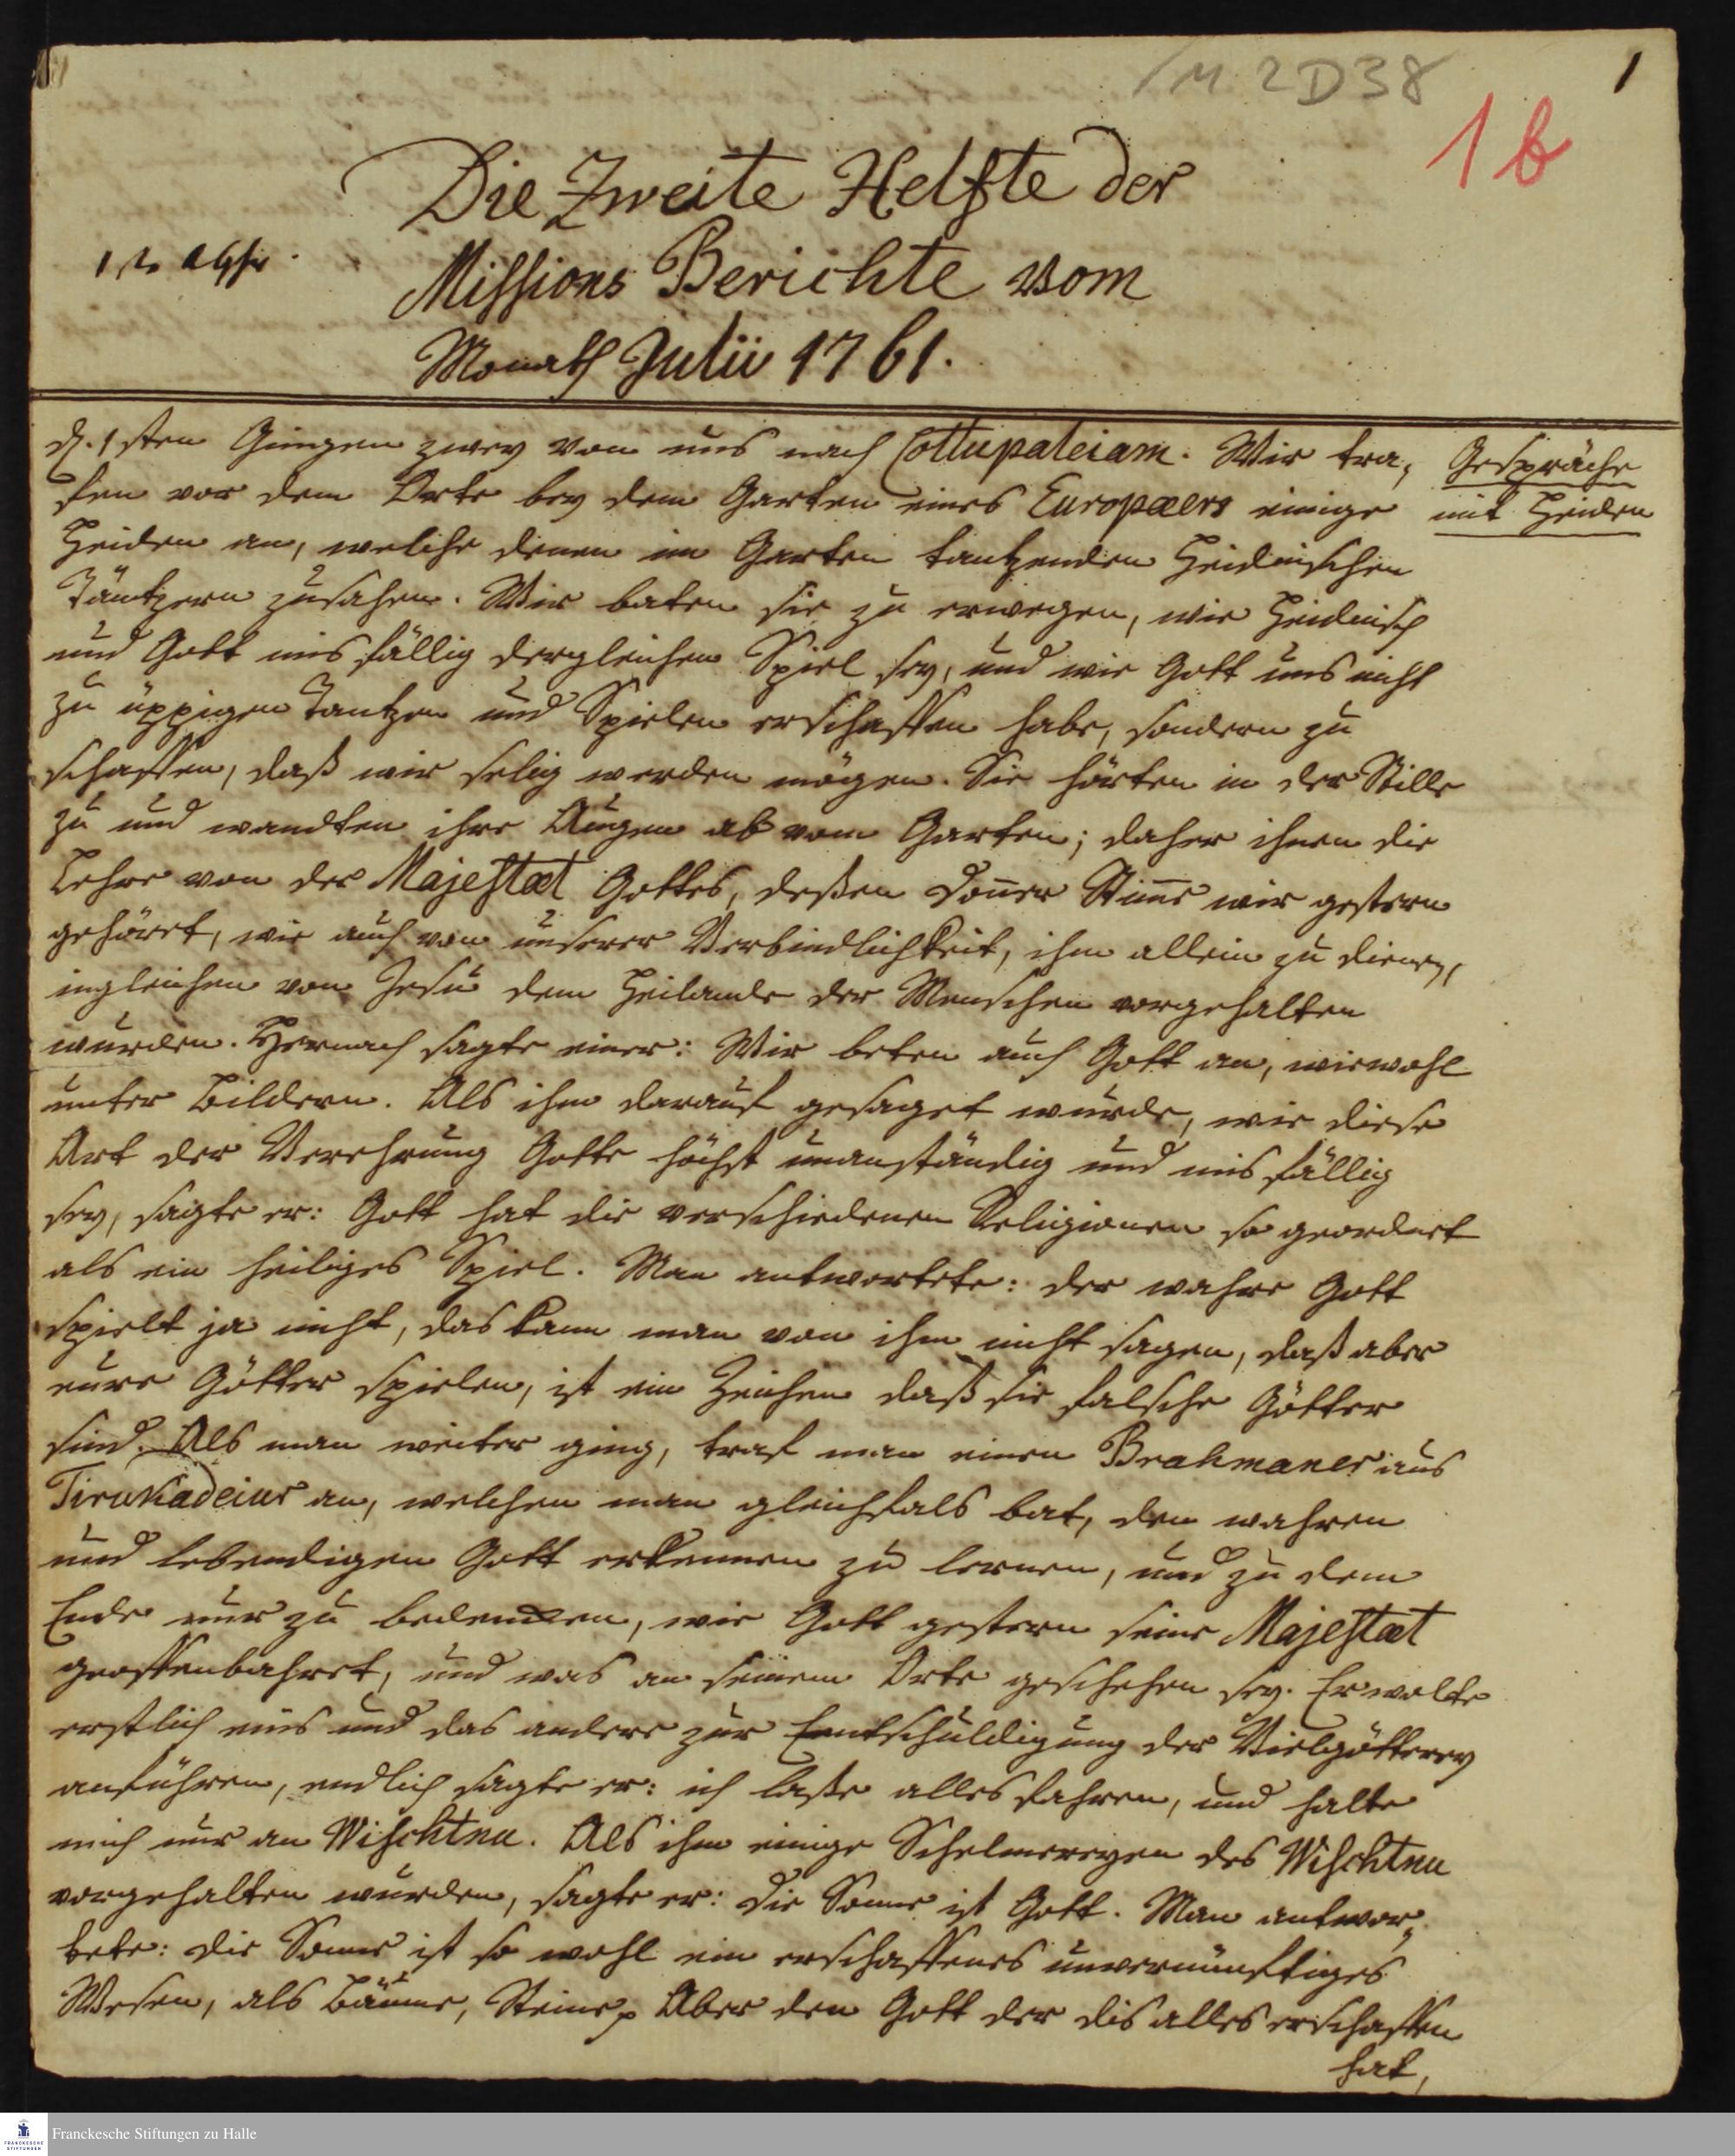 1
M 2 D 38
1 b
Die Zweite Helfte der
Missions Berichte vom
Monath Julii 1761.
d. 1sten Gingen zwey von uns nach Cottupaleiam. Wir tra,
fen vor dem Orte bey dem Garten eines Europæers einige
Heiden an, welche denen im Garten tantzenden Heidnischen
Täntzern zusahen. Wir baten sie zu erwegen, wie Heidnisch
und Gott misfällig dergleichen Spiel sey, und wie Gott uns nicht
zu üppigen Tantzen und Spielen erschaffen habe, sondern zu
schaffen, daß wir selig werden mögen. Sie hörten in der Stille
zu und wandten ihre Augen ab vom Garten; daher ihnen die
Lehre von der Majestæt Gottes, deßen Doner Stime wir gestern
gehöret, wie auch von unserer Verbindlichkeit, ihm allein zu dienen,
ingleichen von Jesu dem Heilande der Menschen vorgehalten
wurden. Hernach sagte einer: Wir beten auch Gott an, wiewohl
unter Bildern. Als ihm darauf gesaget wurde, wie diese
Art der Verehrung Gotte höchst unanständig und misfällig
sey, sagte er: Gott hat die verschiedenen Religionen so geordnet
als ein heiliges Spiel. Man antwortete: der wahre Gott
spielt ja nicht, das kann man von ihm nicht sagen, daß aber
eure Götter spielen, ist ein Zeichen daß sie falsche Götter
sind. Als man weiter ging, traf man einen Brahmaner aus
Tirukadeiur an, welchen man gleichfals bat, den wahren
und lebendigen Gott erkennen zu lernen, und zu dem
Ende nur zu bedencken, wie Gott gestern seine Majestæt
geoffenbahret, und was an seinem Orte geschehen sey. Er wolte
erstlich eins und das andere zur Entschuldigung der Vielgötterey
anführen, endlich sagte er: ich laße alles fahren, und halte
mich nur an Wischtnu. Als ihm einige Schelmereyen des Wischtnu
vorgehalten wurden, sagte er: die Sonne ist Gott. Man antwor,
tete: die Sonne ist so wohl ein erschaffenes unvernünftiges
Wesen, als Bäume, Steine p Aber den Gott der dis alles erschaffen
hat,
Gespräche
mit Heiden
Franckesche Stiftungen zu Halle
FRANCKESCHE
STIFTUNGEN